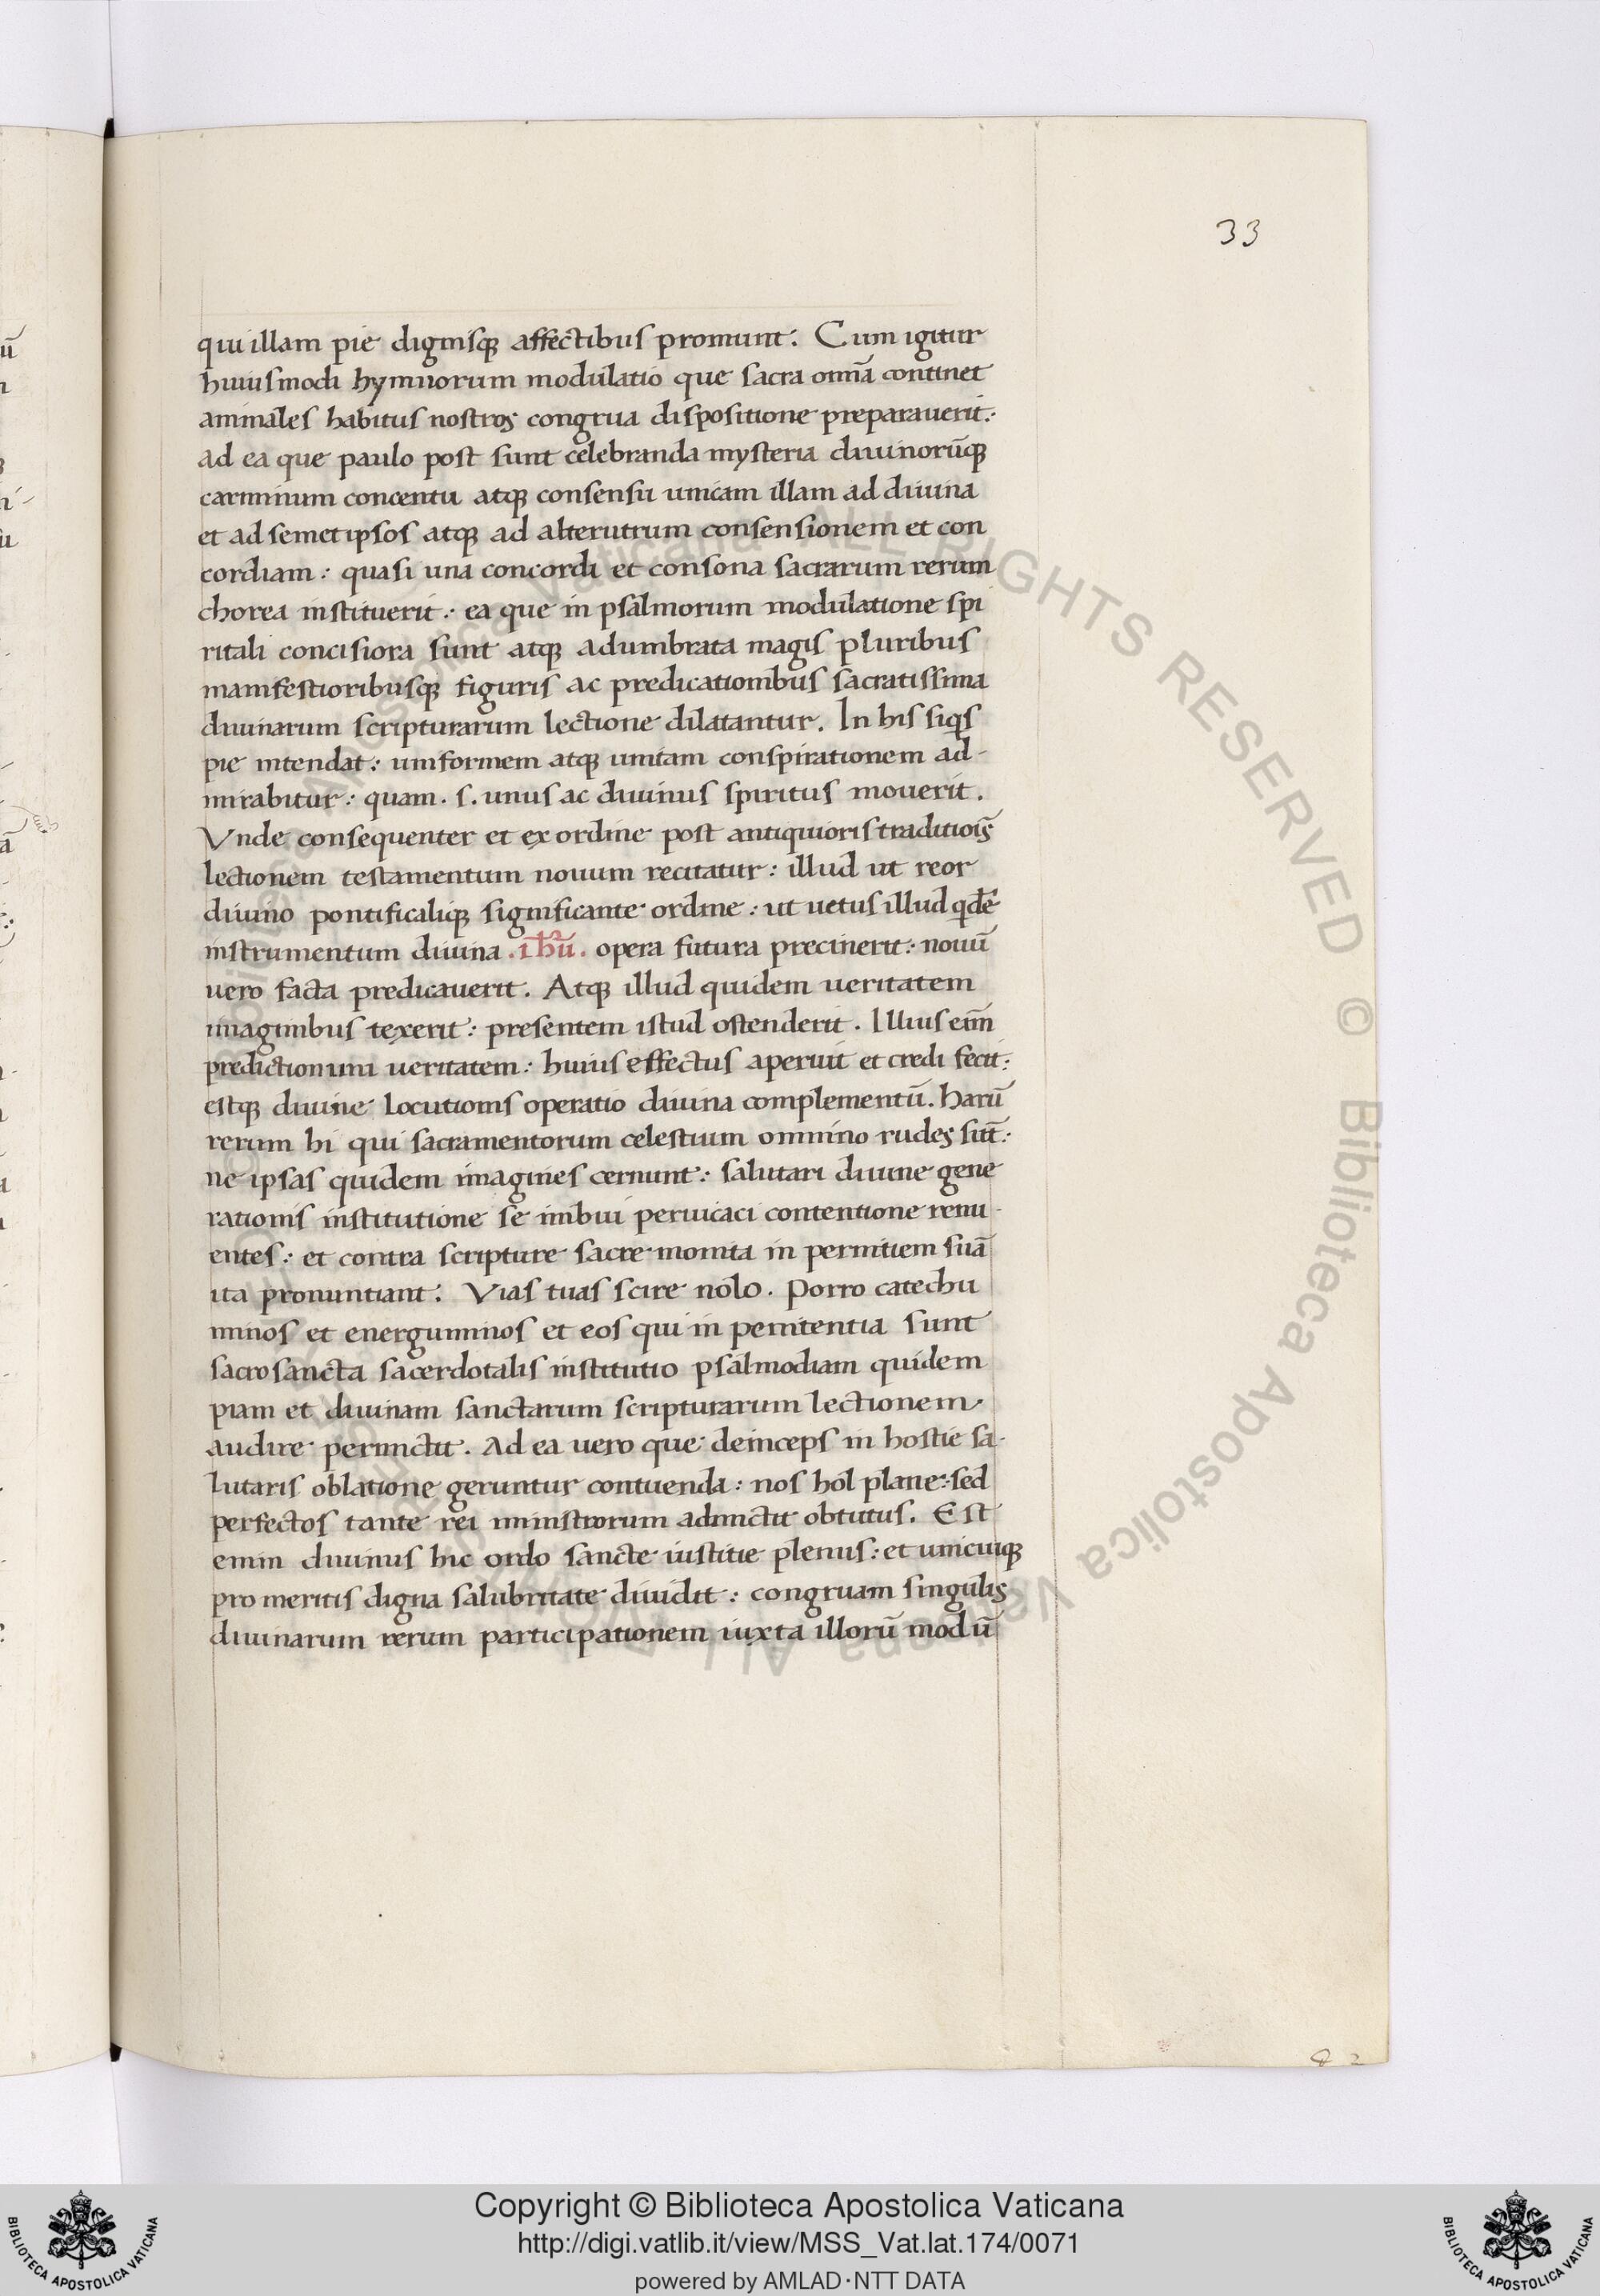 33
qui illam pie dignisq; affectibus promunt. Cum igitur
huiusmodi hymnorum modulatio que sacra omīa continet
animales habitus nostros congrua dispositione preparauerit:
ad ea que paulo post sunt celebranda mysteria diuinorūq;
carminum concentu atq; consensu unicam illam ad diuina
et ad semetipsos atq; ad alterutrum consensionem et con
cordiam: quasi una concordi et consona sacrarum rerum
chorea instituerit: ea que in psalmorum modulatione spi
ritali concisiora sunt atq; adumbrata magis pluribus
manifestioribusq; figuris ac predicationibus sacratissima
diuinarum scripturarum lectione dilatantur. In his siqs
pie intendat: uniformem atq; unitam conspirationem ad-
mirabitur: quam .s. unus ac diuinus spiritus mouerit.
Vnde consequenter et ex ordine post antiquioris traditiois̄
lectionem testamentum nouum recitatur: illud ut reor
diuino pontificaliq; significante ordine: ut uetus illud qdē
instrumentum diuina .ihū. opera futura precinerit: nouū
uero facta predicauerit. Atq; illud quidem ueritatem
imaginibus texerit: presentem istud ostenderit. Illius eim̄
predictionum ueritatem: huius effectus aperuit et credi fecit:
estq; diuine locutionis operatio diuina complementū. harū
rerum hi qui sacramentorum celestium omnino rudes sūt:
ne ipsas quidem imagines cernunt: salutari diuine gene
rationis institutione se imbui peruicaci contentione renu-
entes: et contra scripture sacre monita in pernitiem suā
ita pronuntiant: Vias tuas scire nolo. Porro catechu
minos et energuminos et eos qui in penitentia sunt
sacrosancta sacerdotalis institutio psalmodiam quidem
piam et diuinam sanctarum scripturarum lectionem
audire permictit. Ad ea uero que deinceps in hostie sa-
lutaris oblatione geruntur contuenda: nos hol plane: sed
perfectos tante rei ministrorum admictit obtutus. Est
enim diuinus hic ordo sancte iustitie plenus: et unicuiq;
pro meritis digna salubritate diuidit: congruam singulis
diuinarum rerum participationem iuxta illorū modū
Copyright © Biblioteca Apostolica Vaticana
http://digi.vatlib.it/view/MSS_Vat.lat.174/0071
powered by AMLAD·NTT DATA
BIBLIOTECA APOSTOLICA VATICANA
BIBLIOTECA APOSTOLICA VATICANA